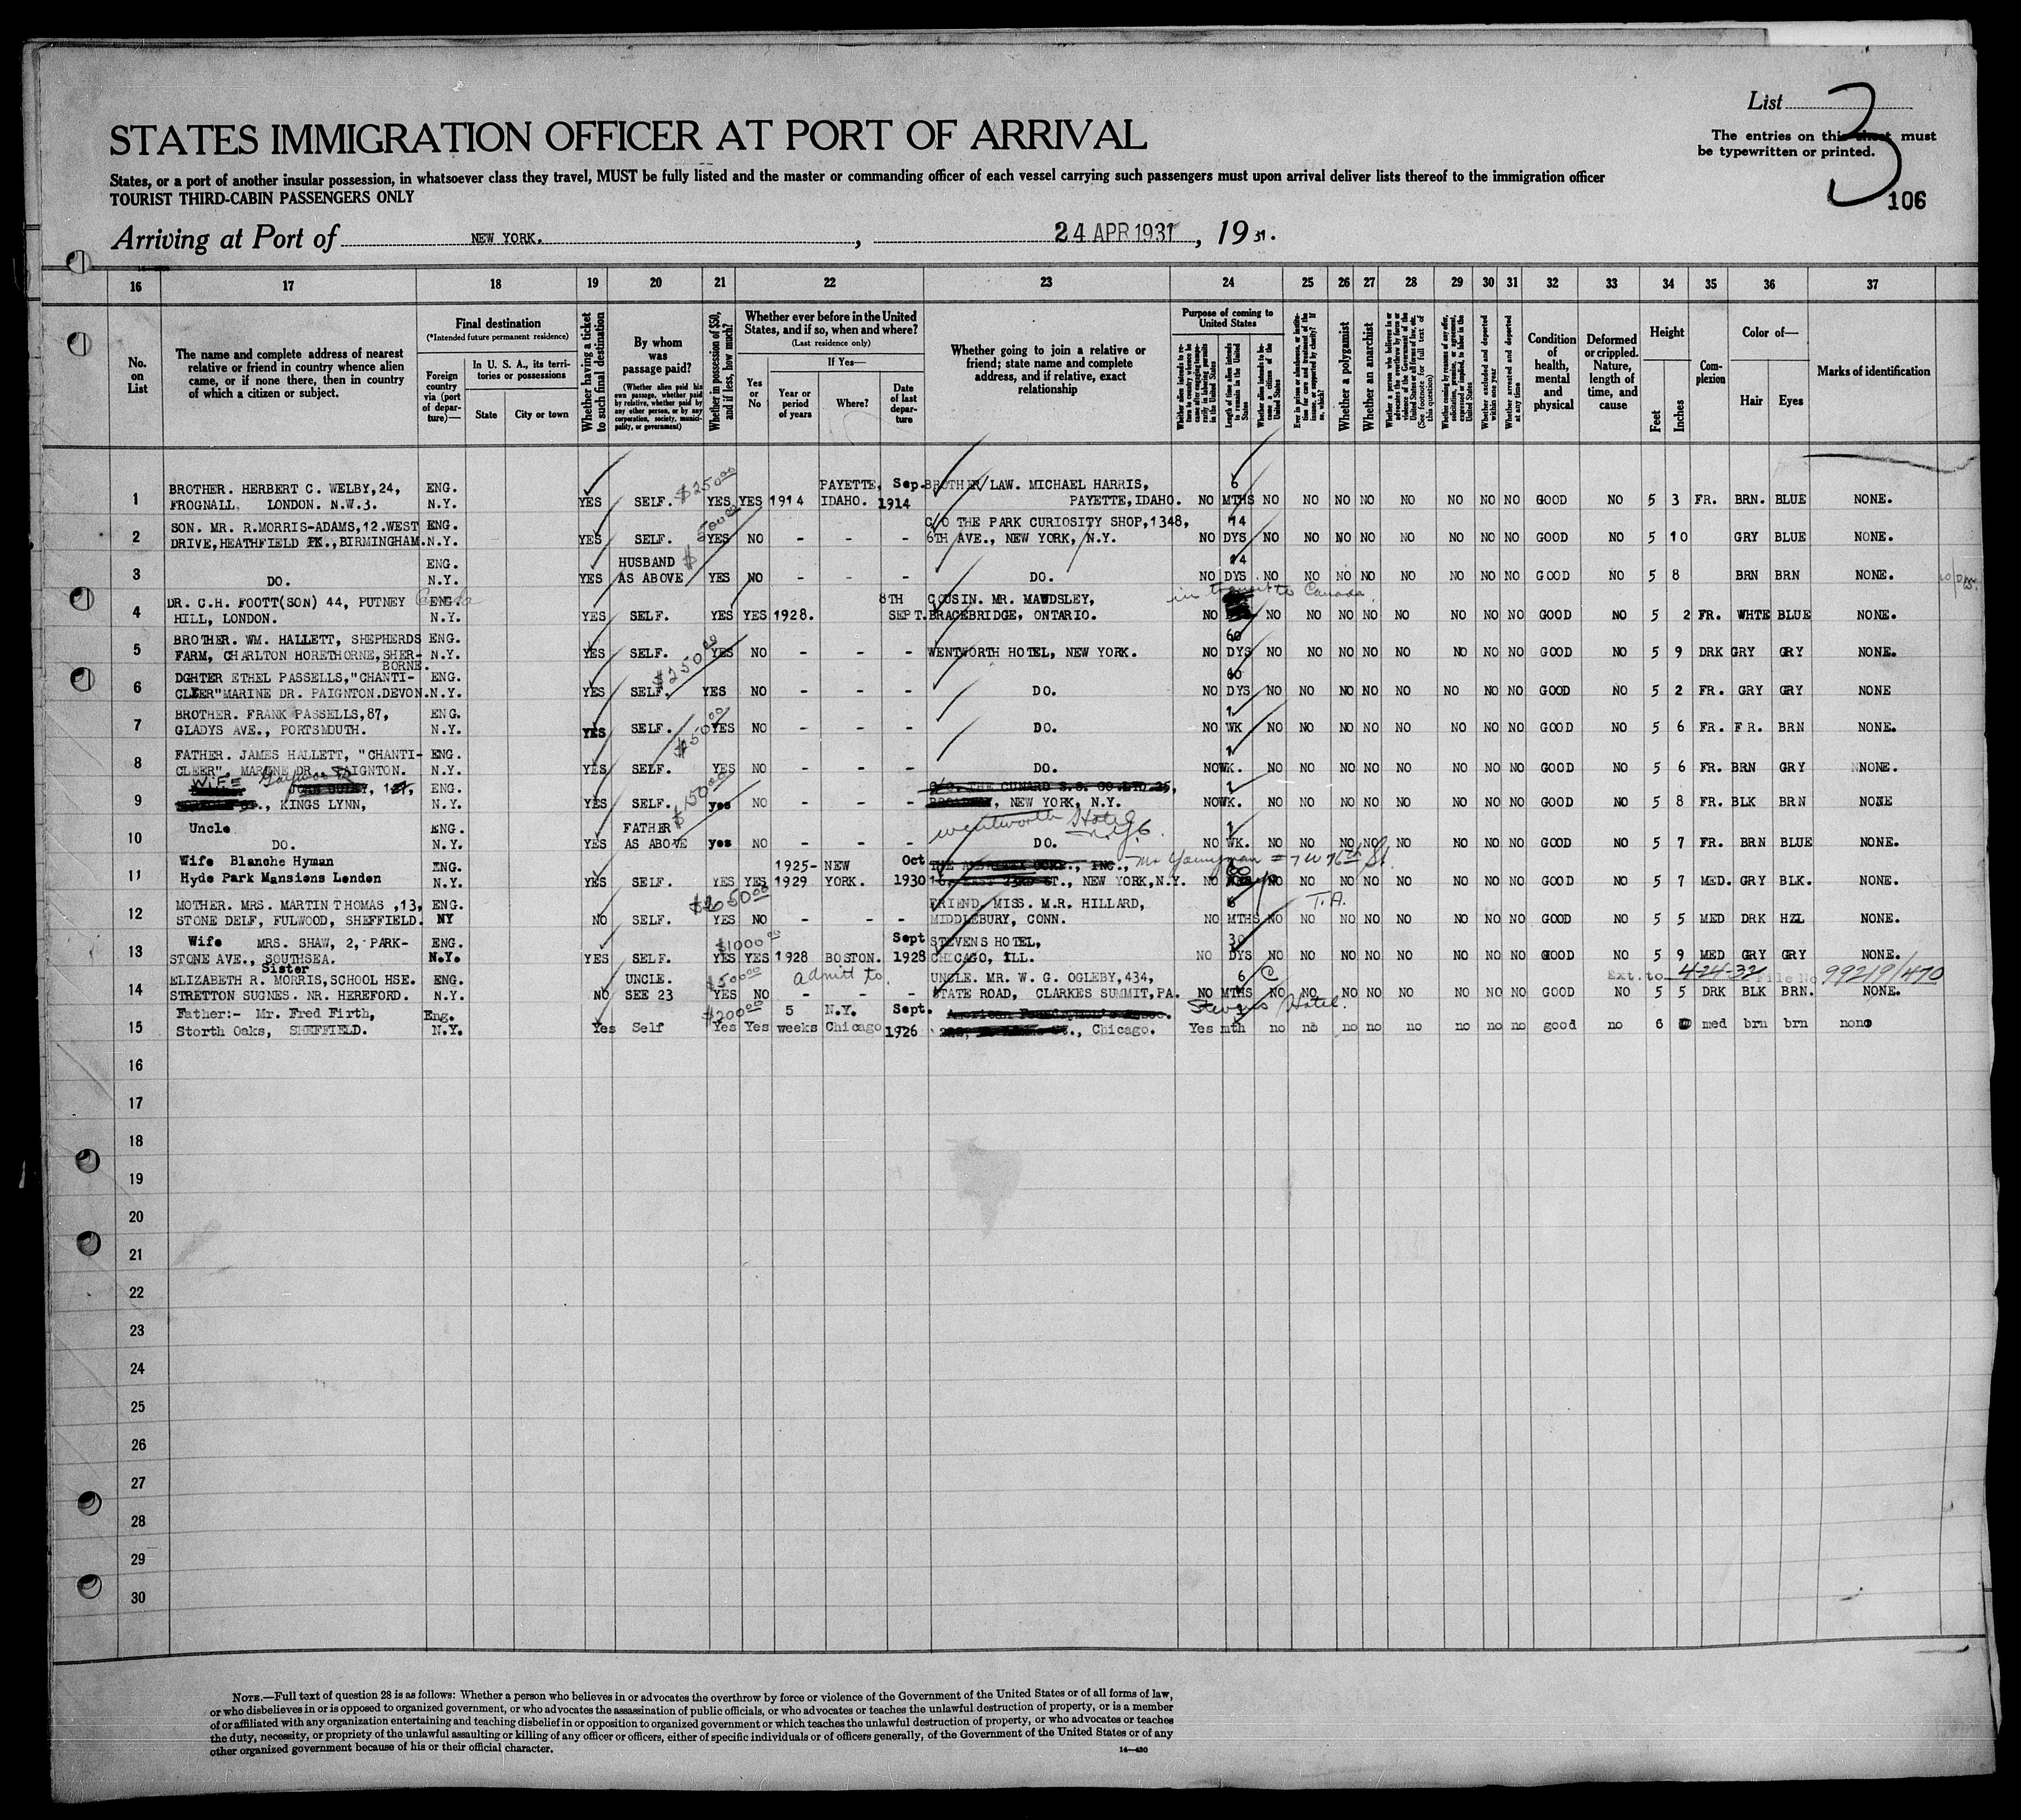 List 3
STATES IMMIGRATION OFFICER AT PORT OF ARRIVAL
The entries on this sheet must
be typewritten or printed.
States, or a port of another insular possession, in whatsoever class they travel, MUST be fully listed and the master or commanding officer of each vessel carrying such passengers must upon arrival deliver lists thereof to the immigration officer
TOURIST THIRD-CABIN PASSENGERS ONLY
106
Arriving at Port of NEW YORK. , 24 APR 1931 , 19 31.
16 17 18 19 20 21 22 23 24 25 26 27 28 29 30 31 32 33 34 35 36 37
No. on List
The name and complete address of nearest relative or friend in country whence alien came, or if none there, then in country of which a citizen or subject.
Final destination
(*Intended future permanent residence)
Foreign country via (port of departure)—
In U. S. A., its territories or possessions
State
City or town
Whether having a ticket to such final destination
By whom was passage paid?
(Whether alien paid his own passage, whether paid by relative, whether paid by any other person, or by any corporation, society, municipality, or government)
Whether in possession of $50, and if less, how much?
Whether ever before in the United States, and if so, when and where?
(Last residence only)
If Yes—
Yes or No
Year or period of years
Where?
Date of last departure
Whether going to join a relative or friend; state name and complete address, and if relative, exact relationship
Purpose of coming to United States
Length of time alien intends to remain in the United States
Whether a polygamist
Whether an anarchist
(See footnote for full text of this question)
Whether excluded and deported within one year
Whether arrested and deported at any time
Condition of health, mental and physical
Deformed or crippled. Nature, length of time, and cause
Height
Feet
Inches
Complexion
Color of—
Hair
Eyes
Marks of identification
1 BROTHER. HERBERT C. WELBY,24, FROGNALL LONDON. N.W.3. ENG. N.Y. YES SELF. $250.00 YES YES 1914 PAYETTE, IDAHO. Sep. 1914 BROTHER/LAW. MICHAEL HARRIS, PAYETTE,IDAHO. NO 6 MTHS NO NO NO NO NO NO NO NO GOOD NO 5 3 FR. BRN. BLUE NONE.
2 SON. MR. R.MORRIS-ADAMS,12.WEST DRIVE,HEATHFIELD PK.,BIRMINGHAM. ENG. N.Y. YES SELF. YES NO - - - C/O THE PARK CURIOSITY SHOP,1348, 6TH AVE., NEW YORK, N.Y. NO 14 DYS NO NO NO NO NO NO NO NO GOOD NO 5 10 GRY BLUE NONE.
3 DO. ENG. N.Y. YES HUSBAND AS ABOVE YES NO - - - DO. NO 14 DYS NO NO NO NO NO NO NO NO GOOD NO 5 8 BRN BRN NONE.
4 DR. C.H. FOOTT(SON) 44, PUTNEY HILL, LONDON. ENG. N.Y. YES SELF. YES YES 1928. 8TH SEPT. COUSIN. MR. MAWDSLEY, BRACEBRIDGE, ONTARIO. in transit to Canada. NO NO NO NO NO NO NO NO NO GOOD NO 5 2 FR. WHTE BLUE NONE.
5 BROTHER. WM. HALLETT, SHEPHERDS FARM, CHARLTON HORETHORNE,SHERBORNE. ENG. N.Y. YES SELF. YES NO - - - WENTWORTH HOTEL, NEW YORK. NO 60 DYS NO NO NO NO NO NO NO NO GOOD NO 5 9 DRK GRY GRY NONE.
6 DGHTER ETHEL PASSELLS,"CHANTICLEER"MARINE DR. PAIGNTON.DEVON. ENG. N.Y. YES SELF. $250.00 YES NO - - - DO. NO 60 DYS NO NO NO NO NO NO NO NO GOOD NO 5 2 FR. GRY GRY NONE
7 BROTHER. FRANK PASSELLS,87, GLADYS AVE., PORTSMOUTH. ENG. N.Y. YES SELF. YES NO - - - DO. NO 1 WK NO NO NO NO NO NO NO NO GOOD NO 5 6 FR. FR. BRN NONE.
8 FATHER. JAMES HALLETT, "CHANTICLEER". MARINE DR. PAIGNTON. ENG. N.Y. YES SELF. YES NO - - - DO. NO 1 WK. NO NO NO NO NO NO NO NO GOOD NO 5 6 FR. BRN GRY NONE.
9 WIFE KINGS LYNN, ENG. N.Y. YES SELF. $150.00 yes NO - - - C/O. THE CUNARD S.S. CO LTD 25, BROADWAY, NEW YORK, N.Y. Wentworth Hotel N.Y.C. NO 1 WK. NO NO NO NO NO NO NO NO GOOD NO 5 8 FR. BLK BRN NONE
10 Uncle DO. ENG. N.Y. YES FATHER AS ABOVE yes NO - - - DO. NO 1 WK. NO NO NO NO NO NO NO NO GOOD NO 5 7 FR. BRN BLUE NONE.
11 Wife Blanche Hyman Hyde Park Mansions London ENG. N.Y. YES SELF. YES YES 1925-1929 NEW YORK. Oct 1930 NEW YORK,N.Y. NO NO NO NO NO NO NO NO NO GOOD NO 5 7 MED. GRY BLK. NONE.
12 MOTHER. MRS. MARTIN THOMAS ,13, STONE DELF, FULWOOD, SHEFFIELD. ENG. NY NO SELF. YES NO - - - FRIEND. MISS. M.R. HILLARD, MIDDLEBURY, CONN. NO 6 MTHS NO T.A. NO NO NO NO NO NO NO GOOD NO 5 5 MED DRK HZL NONE.
13 Wife MRS. SHAW, 2, PARKSTONE AVE., SOUTHSEA. ENG. N.Y. YES SELF. $1000.00 YES YES 1928 BOSTON. Sept 1928 STEVENS HOTEL, CHICAGO, ILL. NO 30 DYS NO NO NO NO NO NO NO NO GOOD NO 5 9 MED GRY GRY NONE.
14 Sister ELIZABETH R. MORRIS,SCHOOL HSE. STRETTON SUGNES. NR. HEREFORD. ENG. N.Y. NO UNCLE. SEE 23 $500.00 YES NO admit to - - - UNCLE. MR. W. G. OGLEBY,434, STATE ROAD, CLARKES SUMMIT,PA. NO 6 MTHS C NO NO NO NO NO NO NO NO GOOD NO 5 5 DRK BLK BRN. NONE. Ext. to 4-24-32 File No 99219/470
15 Father:- Mr. Fred Firth, Storth Oaks, SHEFFIELD. Eng. N.Y. Yes Self $200.00 Yes Yes 5 weeks N.Y. Chicago Sept. 1926 Chicago. Stevens Hotel. Yes mth no no no no no no no no good no 6 med brn brn none
16
17
18
19
20
21
22
23
24
25
26
27
28
29
30
NOTE.—Full text of question 28 is as follows: Whether a person who believes in or advocates the overthrow by force or violence of the Government of the United States or of all forms of law,
or who disbelieves in or is opposed to organized government, or who advocates the assassination of public officials, or who advocates or teaches the unlawful destruction of property, or is a member
of or affiliated with any organization entertaining and teaching disbelief in or opposition to organized government or which teaches the unlawful destruction of property, or who advocates or teaches
the duty, necessity, or propriety of the unlawful assaulting or killing of any officer or officers, either of specific individuals or of officers generally, of the Government of the United States or of any
other organized government because of his or their official character.
14—430